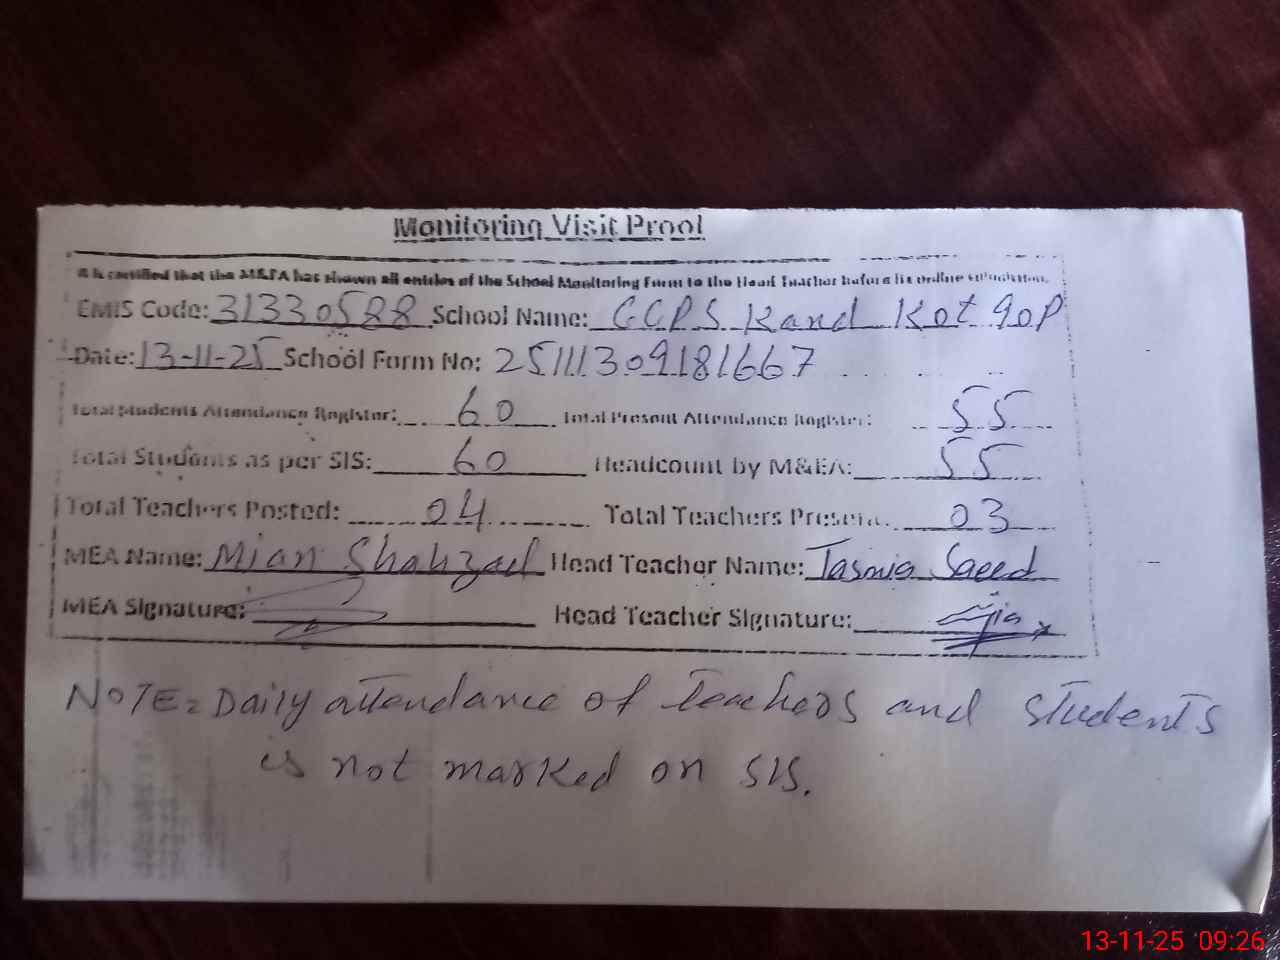 Monitoring Visit Proof
It is certified that the M&EA has shown all entries of the School Monitoring Form to the Head Teacher before its online submission.
EMIS Code: 31330588 School Name: GGPS Kand Kot gop
Date: 13-11-25 School Form No: 25111309181667
Total Students Attendance Register: 60 Total Present Attendance Register: 55
Total Students as per SIS: 60 Headcount by M&EA: 55
Total Teachers Posted: 04 Total Teachers Present: 03
MEA Name: Mian Shahzad Head Teacher Name: Tasmia Saeed
MEA Signature: Head Teacher Signature:
NOTE= Daily attendance of Teachers and students
is not marked on SIS.
13-11-25 09:26